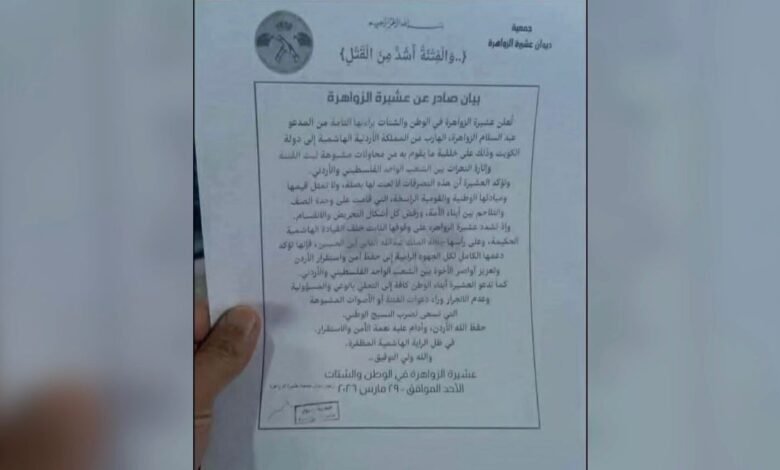 بسم الله الرحمن الرحيم
جمعية
ديوان عشيرة الزواهرة
{..وَالْفِتْنَةُ أَشَدُّ مِنَ الْقَتْلِ}
بيان صادر عن عشيرة الزواهرة
تُعلن عشيرة الزواهرة في الوطن والشتات براءتها التامة من المدعو
عبد السلام الزواهرة، الهارب من المملكة الأردنية الهاشمية إلى دولة
الكويت وذلك على خلفية ما يقوم به من محاولات مشبوهة لبث الفتنة
وإثارة النعرات بين الشعب الواحد الفلسطيني والأردني.
وتؤكد العشيرة أن هذه التصرفات لا تمت لها بصلة، ولا تمثل قيمها
ومبادئها الوطنية والقومية الراسخة، التي قامت على وحدة الصف
والتلاحم بين أبناء الأمة، ورفض كل أشكال التحريض والانقسام.
وإذ تشدد عشيرة الزواهرة على وقوفها الثابت خلف القيادة الهاشمية
الحكيمة، وعلى رأسها جلالة الملك عبدالله الثاني ابن الحسين، فإنها تؤكد
دعمها الكامل لكل الجهود الرامية إلى حفظ أمن واستقرار الأردن
وتعزيز أواصر الأخوة بين الشعب الواحد الفلسطيني والأردني.
كما تدعو العشيرة أبناء الوطن كافة إلى التحلي بالوعي والمسؤولية
وعدم الانجرار وراء دعوات الفتنة أو الأصوات المشبوهة
التي تسعى لضرب النسيج الوطني.
حفظ الله الأردن، وأدام عليه نعمة الأمن والاستقرار.
في ظل الراية الهاشمية المظفرة.
والله ولي التوفيق..
عشيرة الزواهرة في الوطن والشتات
الأحد الموافق - ٢٩ مارس ٢٠٢٦